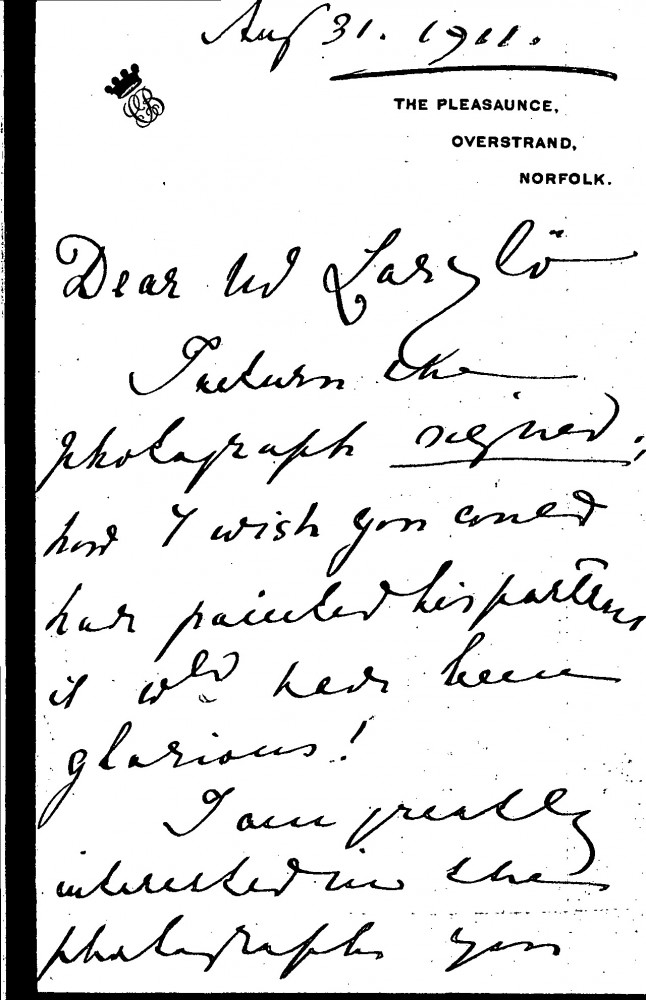 Aug 31. 1911.
THE PLEASAUNCE,
OVERSTRAND,
NORFOLK.
Dear Mr László
I return the
photograph signed;
how I wish you could
have painted his
it wld have been
glorious!
I am greatly
interested in the
photographs you